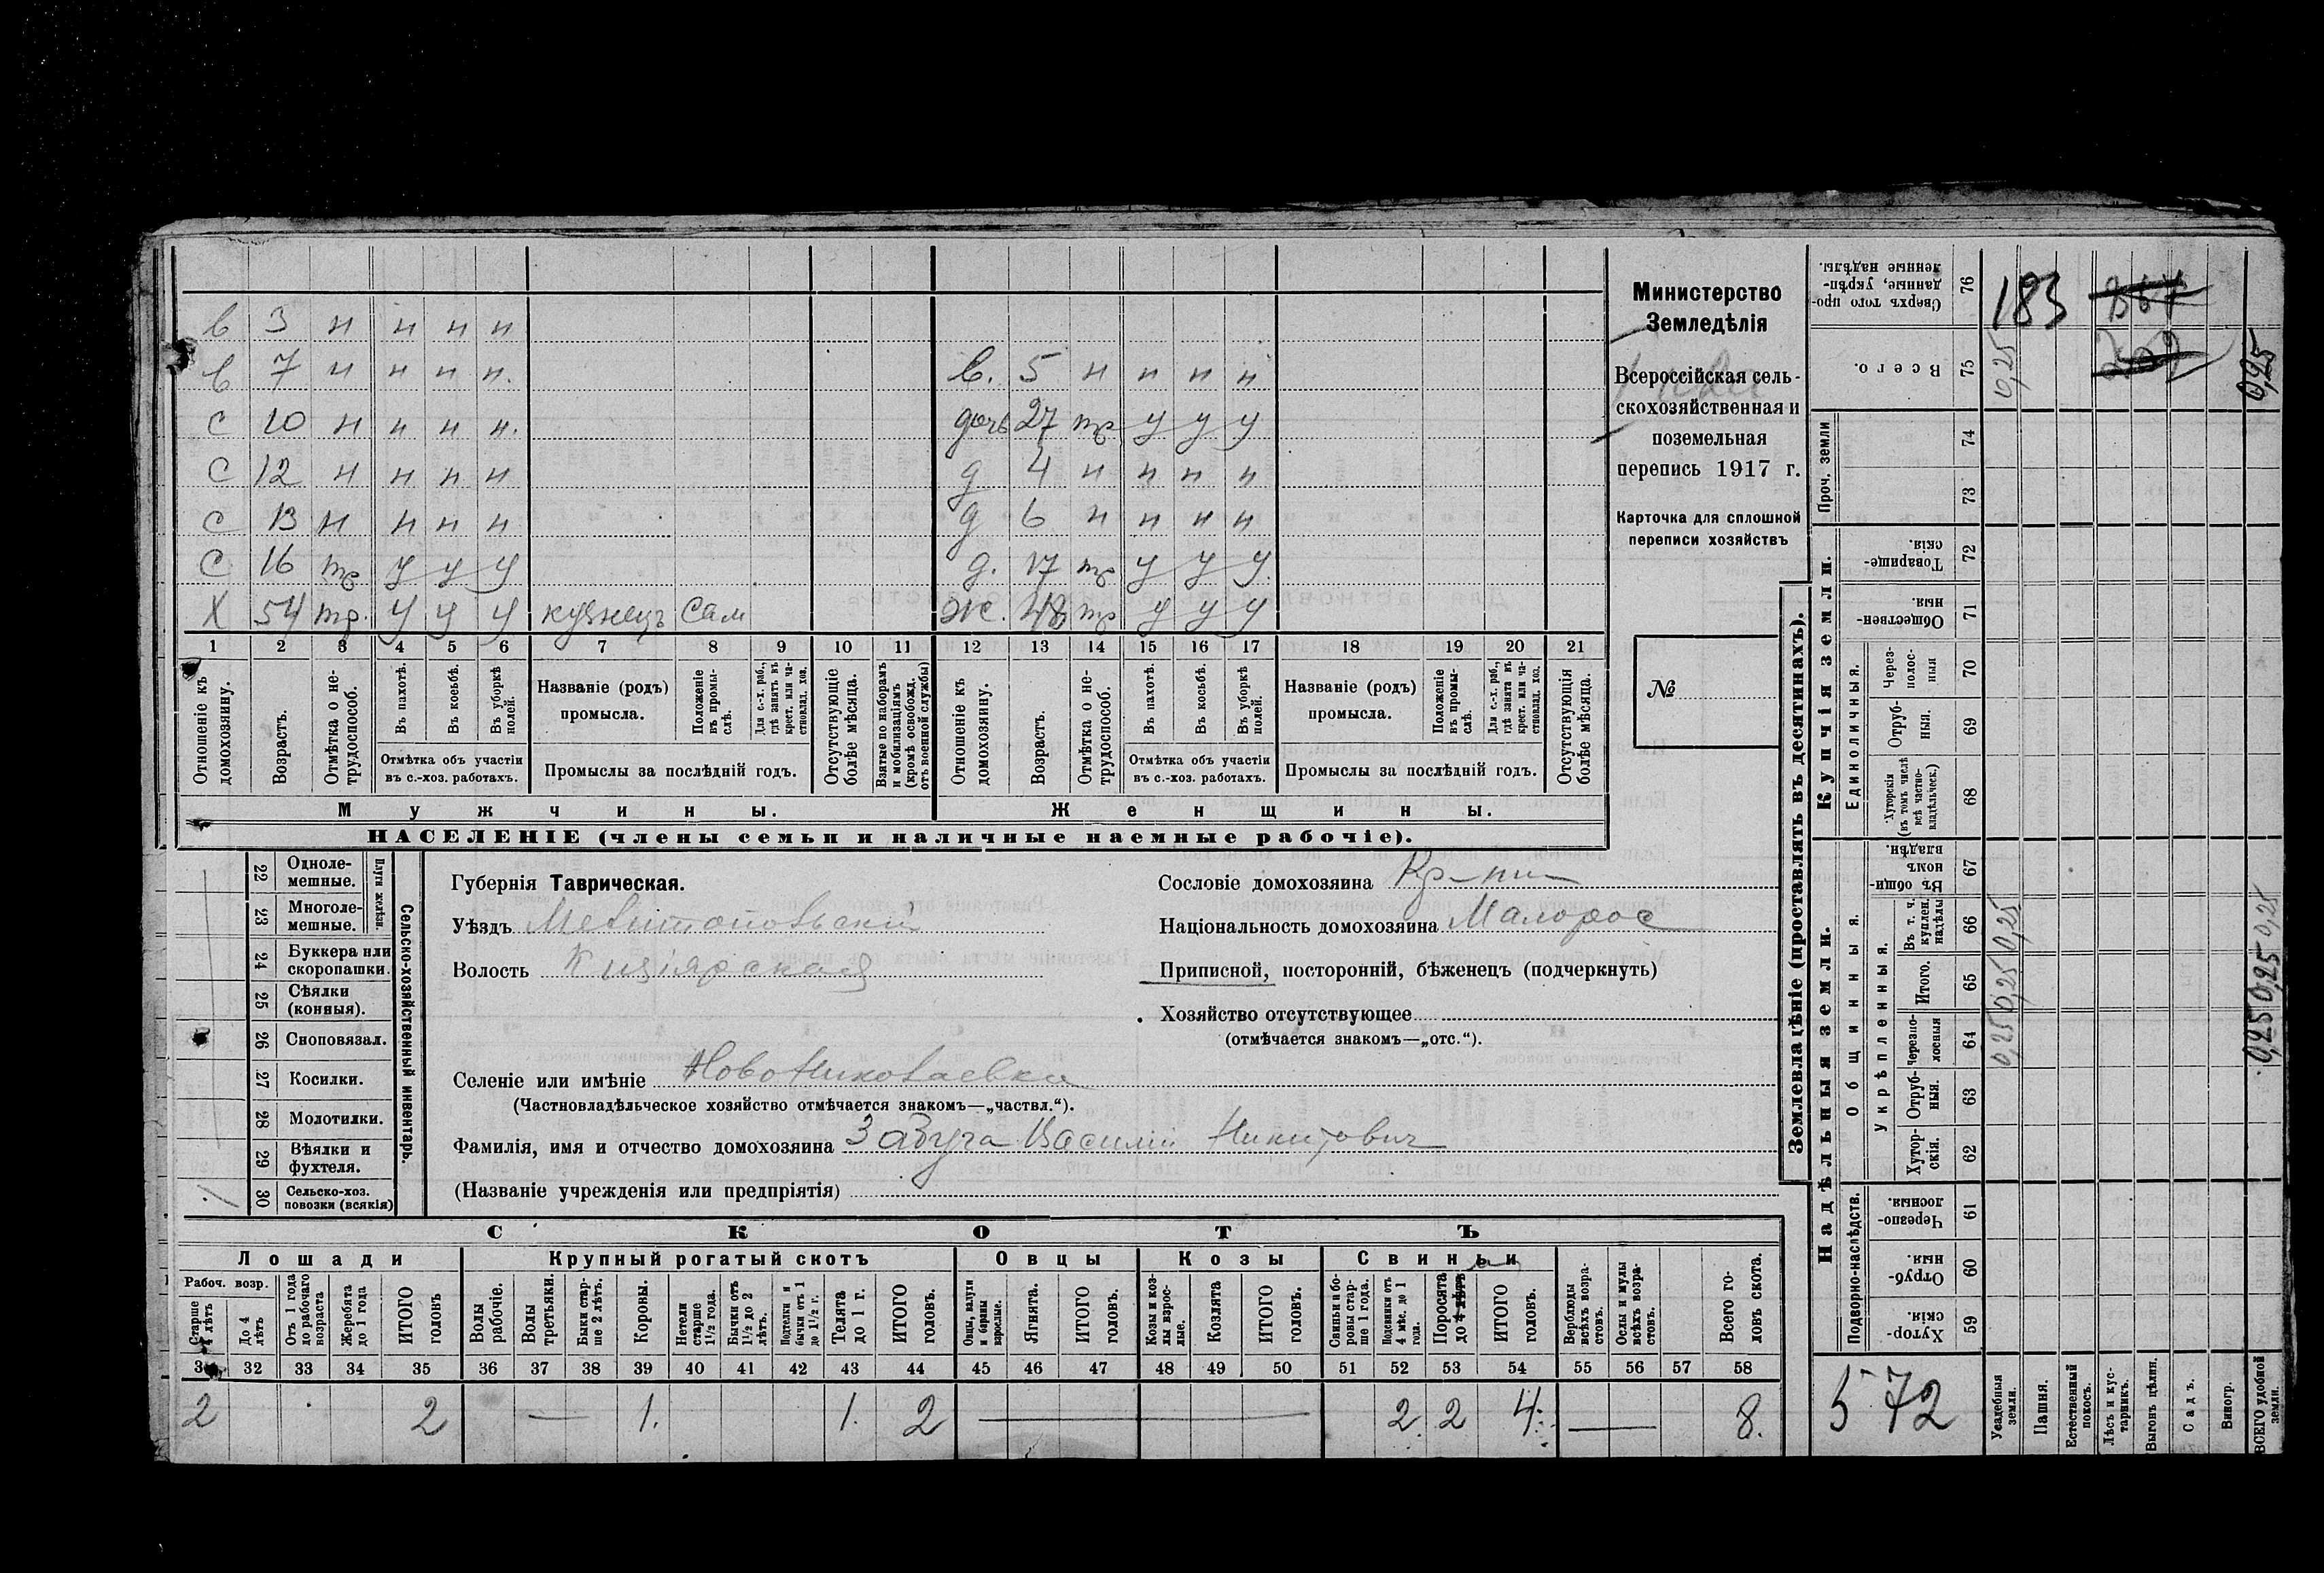 в 3 н н н н
в 7 н н н н. в. 5 н н н н
с 10 н н н н. дочь 27 тр у у у
с 12 н н н н д 4 н н н н
с 13 н н н н д 6 н н н н
с 16 тр у у у д. 17 тр у у у
х 54 тр. у у у кузнецъ сам ж. 48 тр у у у
1 2 3 4 5 6 7 8 9 10 11 12 13 14 15 16 17 18 19 20 21
Отношеніе къ домохозяину.
Возрастъ.
Отмѣтка о не-трудоспособ.
Въ пахотѣ.
Въ косьбѣ.
Въ уборкѣ полей.
Отмѣтка объ участіи
въ с.-хоз. работахъ.
Названіе (родъ)
промысла.
Положеніе въ промы-слѣ.
Для с.-х. раб., гдѣ занятъ въ крест. или ча-стновлад. хоз.
Промыслы за послѣдній годъ.
Отсутствующіе болѣе мѣсяца.
Взятые по наборамъ и мобилизаціямъ (кромѣ освобожд. отъ военной службы)
Отношеніе къ домохозяину.
Возрастъ.
Отмѣтка о не-трудоспособ.
Въ пахотѣ.
Въ косьбѣ.
Въ уборкѣ полей.
Отмѣтка объ участіи
въ с.-хоз. работахъ.
Названіе (родъ)
промысла.
Положеніе въ промы-слѣ.
Для с.-х. раб., гдѣ занята въ крест. или ча-стновлад. хоз.
Промыслы за послѣдній годъ.
Отсутствующія болѣе мѣсяца.
Мужчины.
Женщины.
НАСЕЛЕНІЕ (члены семьи и наличные наемные рабочіе).
Министерство
Земледѣлія
Всероссійская сель-
скохозяйственная и
поземельная
перепись 1917 г.
Карточка для сплошной
переписи хозяйствъ
№
22 Одноле-мешные.
23 Многоле-мешные.
Плуги желѣзн.
24 Буккера или скоропашки.
25 Сѣялки (конныя).
26 Сноповязал.
27 Косилки.
28 Молотилки.
29 Вѣялки и фухтеля.
30 Сельско-хоз. повозки (всякія)
Сельско-хозяйственный инвентарь.
Губернія Таврическая.
Уѣздъ Мелитопольскій
Волость Кизіярская
Сословіе домохозяина Кр-нин
Національность домохозяина Малорос
Приписной, посторонній, бѣженецъ (подчеркнуть)
Хозяйство отсутствующее
(отмѣчается знакомъ—„отс.“).
Селеніе или имѣніе Ново Николаевка
(Частновладѣльческое хозяйство отмѣчается знакомъ—„частвл.“).
Фамилія, имя и отчество домохозяина Забуга Василій Никитович
(Названіе учрежденія или предпріятія)
СКОТЪ
Лошади Крупный рогатый скотъ Овцы Козы Свиньи
Рабоч. возр.
Старше 4 лѣтъ
До 4 лѣтъ
Отъ 1 года до рабочаго возраста
Жеребята до 1 года
ИТОГО головъ
Волы рабочіе.
Волы третьяки.
Быки стар-ше 2 лѣтъ.
Коровы.
Нетели старше 1½ года.
Бычки отъ 1½ до 2 лѣтъ.
Подтелки и бычки отъ 1 до 1½ г.
Телята до 1 г.
ИТОГО головъ.
Овцы, валухи и бараны взрослые.
Ягнята.
ИТОГО головъ.
Козы и коз-лы взрос-лые.
Козлята
ИТОГО головъ.
Свиньи и бо-ровы стар-ше 1 года.
Подсвинки отъ 4 мѣс. до 1 года.
Поросята до 4 лѣтъ
ИТОГО головъ.
Верблюды всѣхъ возра-стовъ.
Ослы и мулы всѣхъ возра-стовъ.
Всего го-ловъ скота.
32 33 34 35 36 37 38 39 40 41 42 43 44 45 46 47 48 49 50 51 52 53 54 55 56 57 58
2 2 — 1. 1. 2 — 2 2 4. — 8.
Землевладѣніе (проставлять въ десятинахъ).
Купчія земли.
Надѣльныя земли.
Сверхъ того про-данные, укрѣп-ленные надѣлы. 76
Всего. 75
Проч. земли 74 73
Товарище-скія. 72
Обществен-ныя. 71
Единоличныя.
Через-полос-ныя 70
Отруб-ныя. 69
Хуторскія (въ томъ числѣ всѣ частно-владѣльческ.) 68
Общинныя.
Въ общин-номъ владѣн. 67
Укрѣпленныя.
Въ т. ч. куплен. надѣлы 66
Итого. 65
Черезпо-лосныя 64
Отруб-ныя. 63
Хутор-скія. 62
Подворно-наслѣдств.
Черезпо-лосныя. 61
Отруб-ныя 60
Хутор-скія 59
183
367
0,25 0,25
0,25 0,25 0,25 0,25 0,25 0,25
572
Усадебныя земли.
Пашня.
Естественный покосъ.
Лѣсъ и кус-тарникъ.
Выгонъ цѣлин.
Садъ.
Виногр.
ВСЕГО удобной земли.